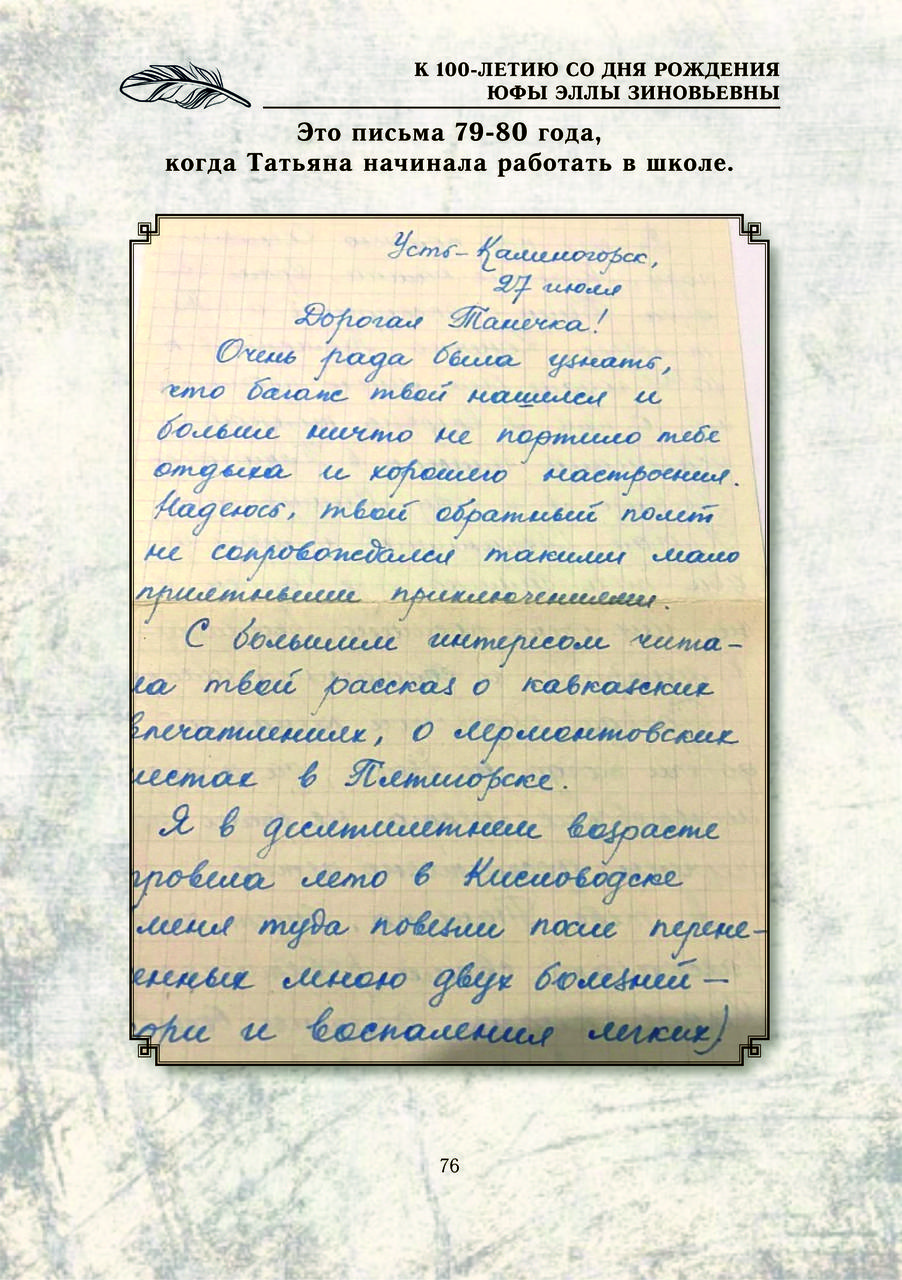 К 100-ЛЕТИЮ СО ДНЯ РОЖДЕНИЯ
ЮФЫ ЭЛЛЫ ЗИНОВЬЕВНЫ
Это письма 79-80 года,
когда Татьяна начинала работать в школе.
Усть-Каминогорск,
27 июля
Дорогая Танечка!
Очень рада была узнать,
что багаж твой нашелся и
больше ничто не портило тебе
отдыха и хорошего настроения.
Надеюсь, твой обратный полет
не сопровождался такими мало
приятными приключениями.
С большим интересом чита-
ла твой рассказ о кавказских
впечатлениях, о лермонтовских
местах в Пятигорске.
Я в десятилетнем возрасте
провела лето в Кисловодске
меня туда повезли после перене-
енных мною двух болезней —
ори и воспаления легких)
76